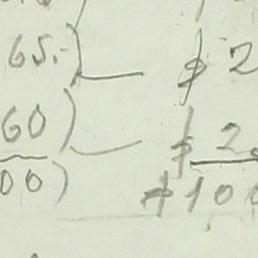 65.-) — $ 2
60) — $ 2.
00) $100